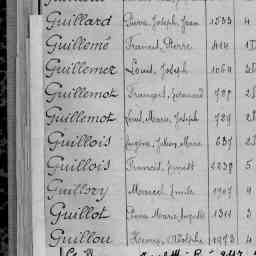 Guillard Pierre, Joseph, Jean 1553 4
Guillemé François, Pierre 414
Guillemer Louis, Joseph 1064
Guillemot François, 788 28
Guillemot Louis, Marie, Joseph 729 28
Guillois Eugène, Julien, Marie 687 2
Guillois Francis, 2238 5
Guillory Marcel, Emile 1907 9
Guillot Pierre, Marie, 1311 3
Guillou Henry, Adolphe 1973 4